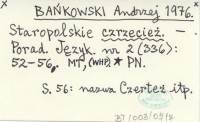 BAŃKOWSKI Andrzej 1976.
Staropolskie czrzecież. –
Porad. Język. nr 2 (336):
52-56. MT (WHP) * PN.
S. 56: nazwa Czerteż itp.